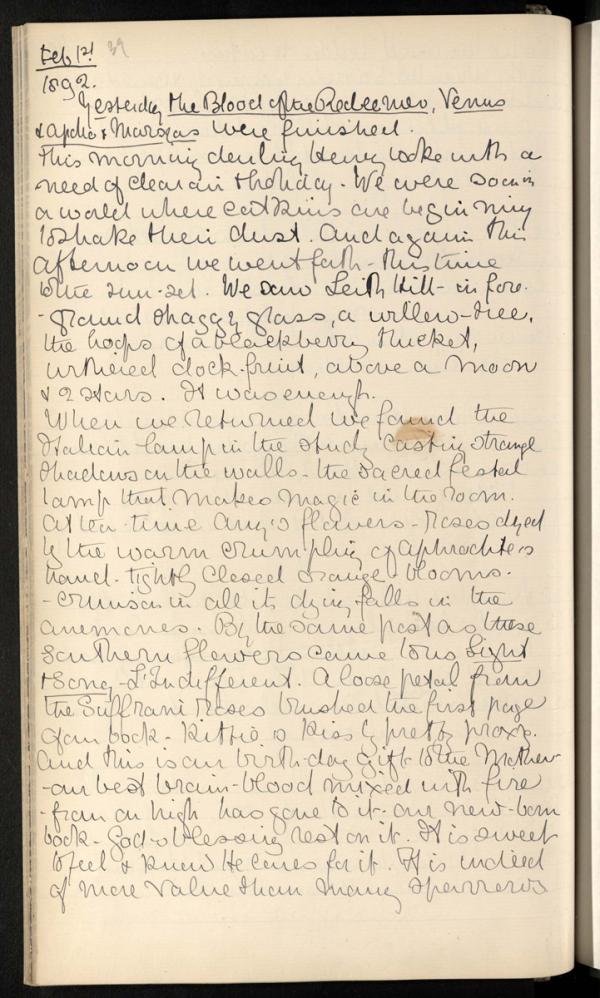 Feb 1st 39
1892.
Yesterday the Blood of the Redeemer, Venus
& Apollo & Marsyas were finished.
This morning darling Henry woke with a
need of clear air & holiday. We were soon in
a world where catkins are beginning
to shake their dust. And again this
afternoon we went forth - this time
to the sun-set. We saw Leith Hill - in fore-
-ground shaggy grass, a willow-tree,
the hoops of a blackberry thicket,
withered dock-fruit, above a moon
& 2 stars. It was enough.
When we returned we found the
Italian lamp in the study casting strange
shadows on the walls - the sacred festal
lamp that makes magic in the room.
At tea-time Amy's flowers - roses dyed
by the warm crumpling of Aphrodite's
hand - tightly closed orange-blooms -
- crimson in all its dying falls in the
anemones. By the same post as these
southern flowers came to us Sight
& Song - L'Indifferent. A loose petal from
the Saffrani roses brushed the first page
of our book - Kittie's kiss by pretty proxy.
And this is our birth-day gift to the Mother
- our best brain-blood mixed with fire
- from on high has gone to it - our new-born
book - God's blessing rest on it. It is sweet
to feel & know He cares for it. It is indeed
of more value than many sparrows